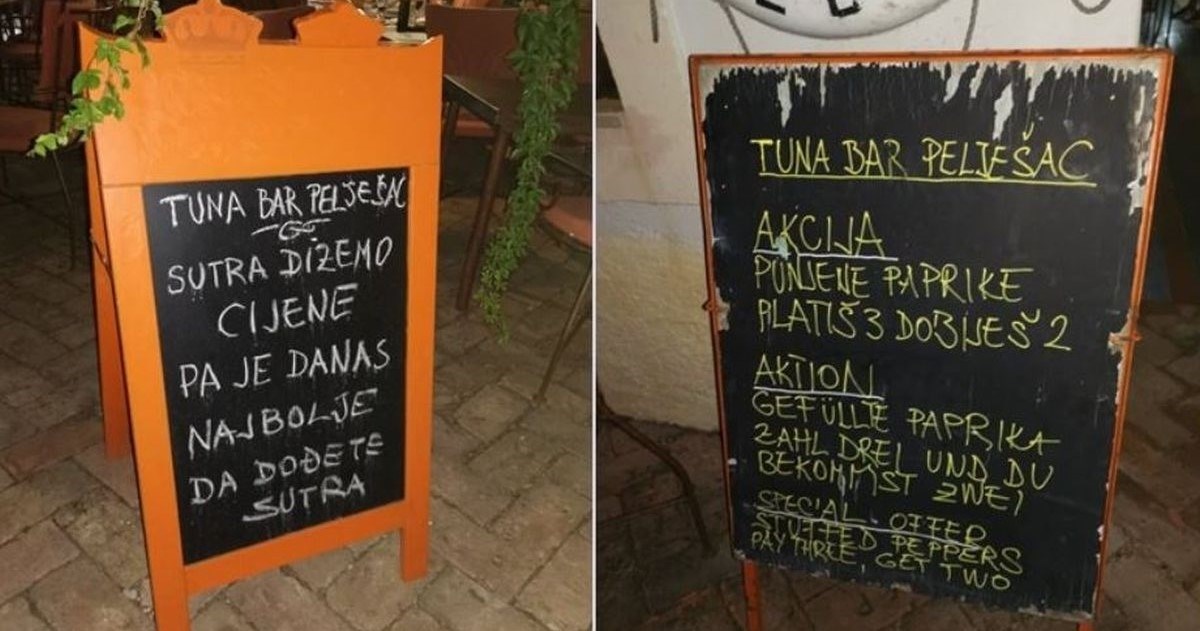 TUNA BAR PELJEŠAC
SUTRA DIŽEMO
CIJENE
PA JE DANAS
NAJBOLJE
DA DOĐETE
SUTRA
TUNA BAR PELJEŠAC
AKCIJA
PUNJENE PAPRIKE
PLATIŠ 3 DOBIJEŠ 2
AKTION
GEFÜLLTE PAPRIKA
ZAHL DREI UND DU
BEKOMMST ZWEI
SPECIAL OFFER
STUFFED PEPPERS
PAY THREE, GET TWO